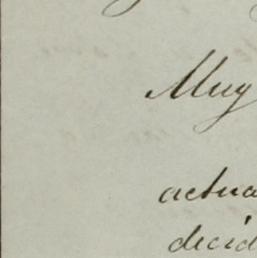 Muy
actua
decid